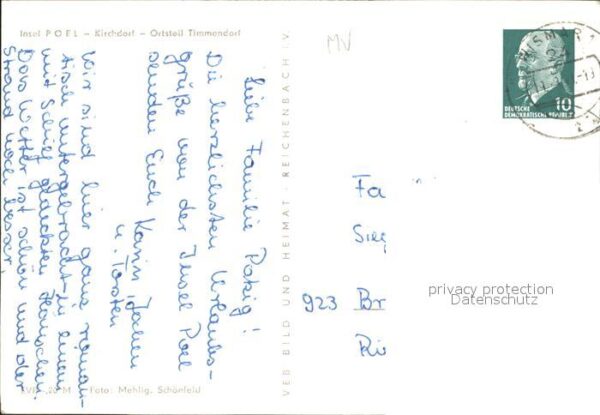 Insel POEL – Kirchdorf – Ortsteil Timmendorf
MV
Liebe Familie Patzig!
Die herzlichsten Urlaubs-
grüße von der Insel Poel
senden Euch Karin, Jochen
u. Torsten
Wir sind hier ganz roman-
tisch untergebracht - in einem
mit Schilf gedeckten Häuschen.
Das Wetter ist schön und der
Strand noch besser.
20 M Foto: Mehlig, Schönfeld
VEB BILD UND HEIMAT · REICHENBACH I. V.
WISMAR
10
DEUTSCHE
DEMOKRATISCHE REPUBLIK
Fa
923 Br
privacy protection
Datenschutz